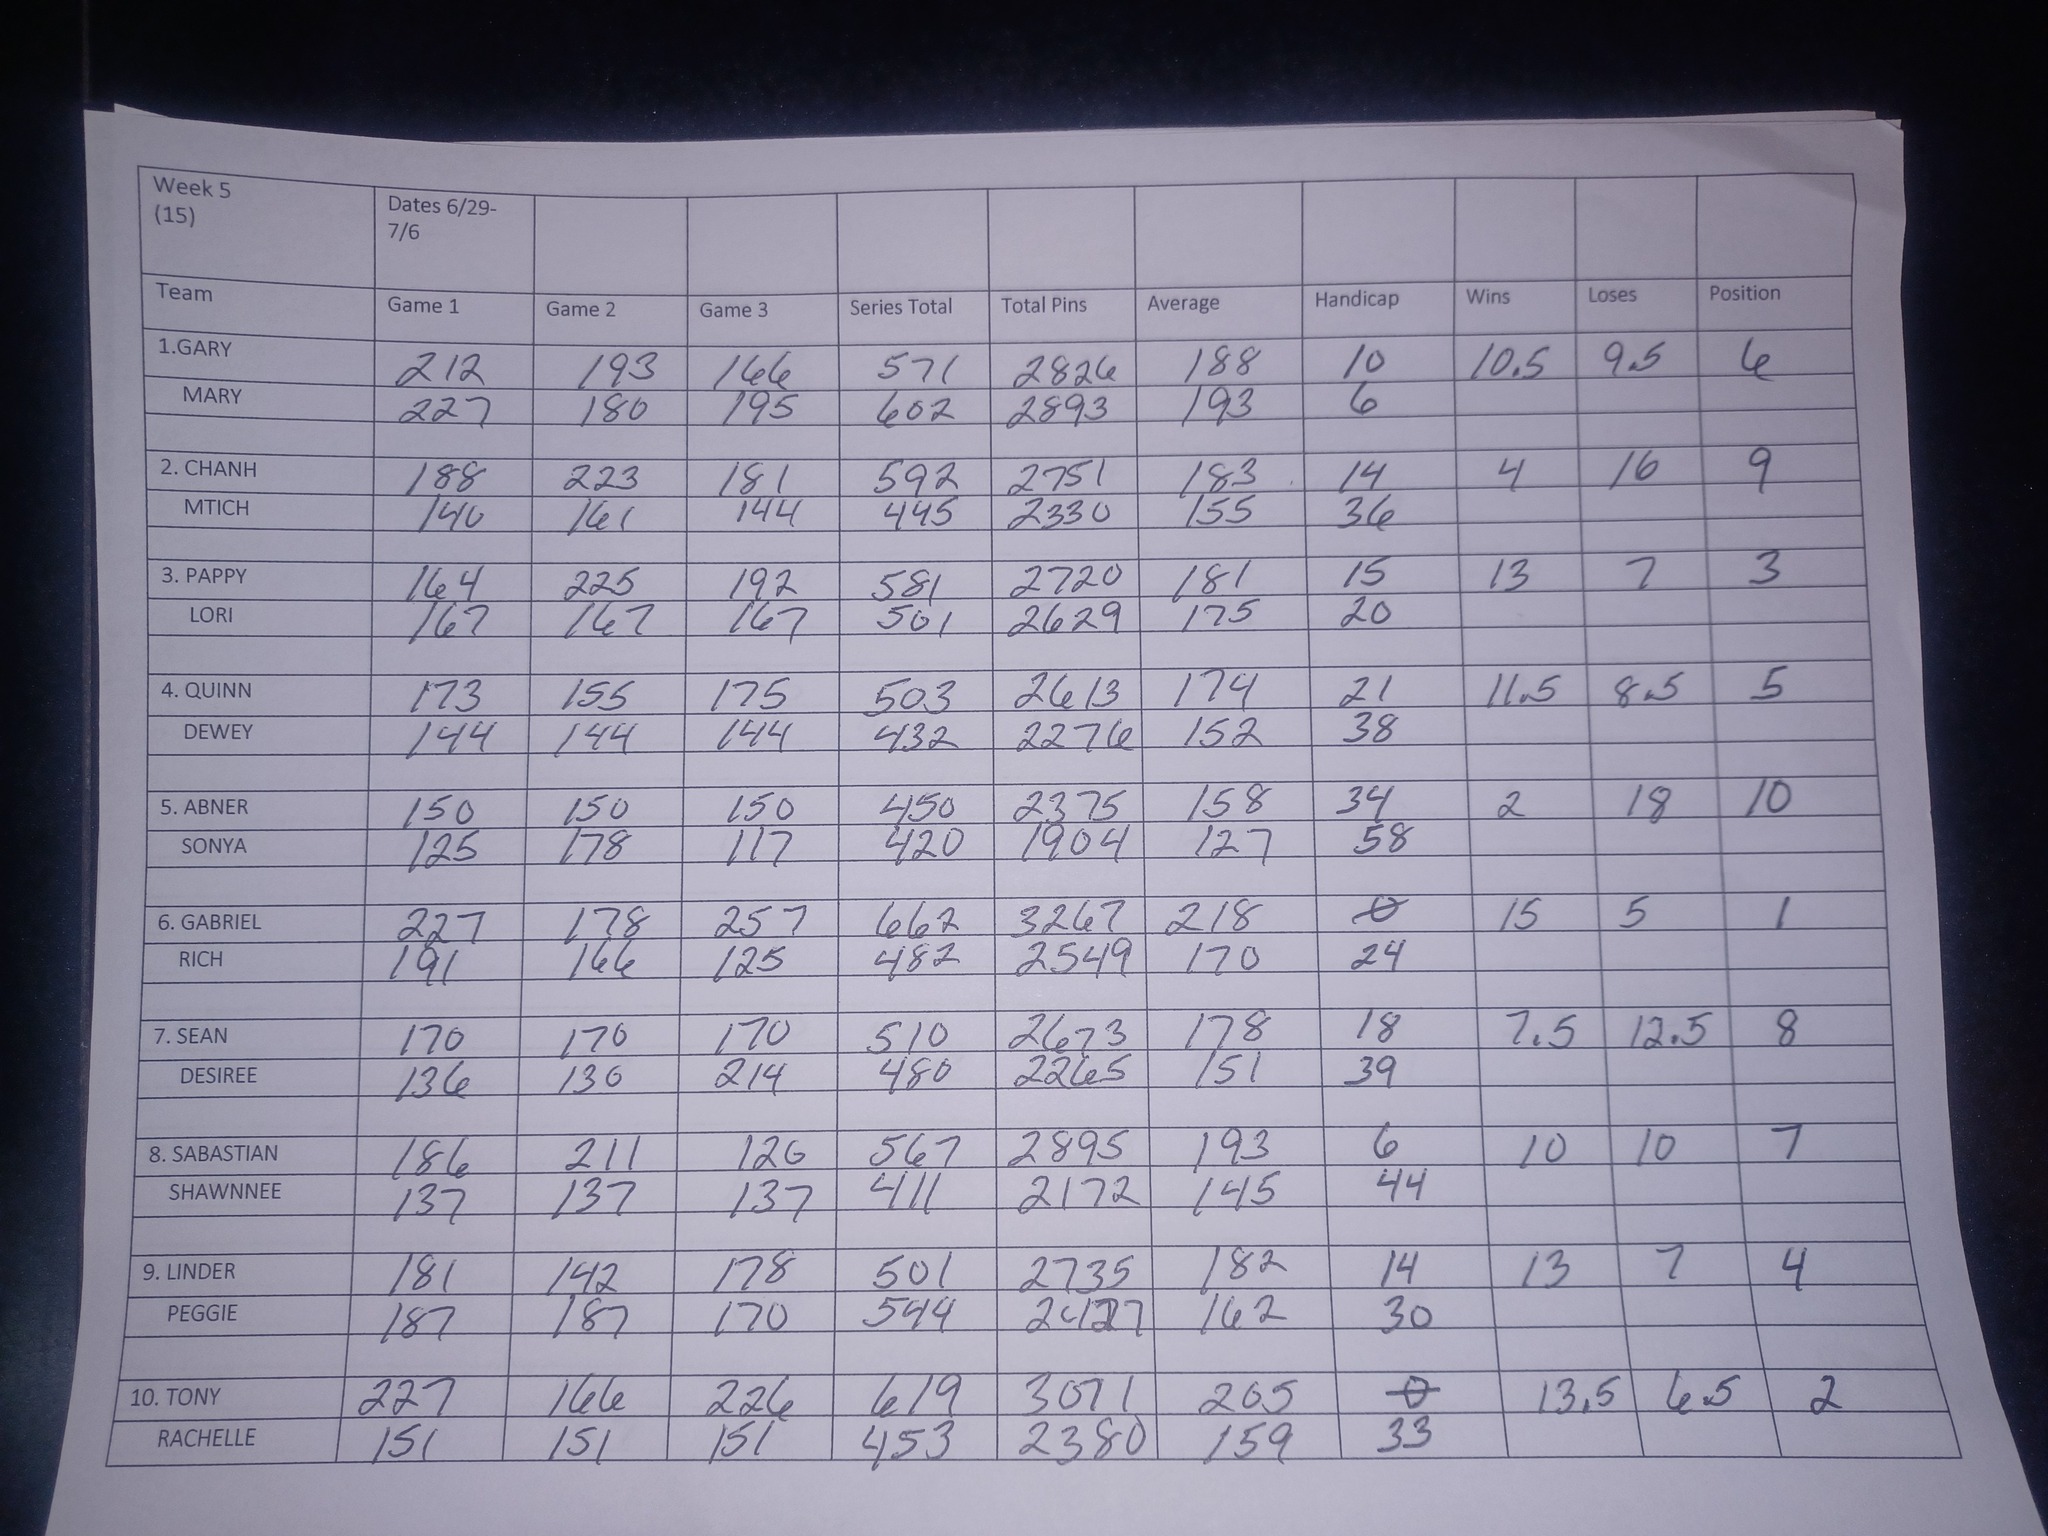 Week 5 (15) Dates 6/29-7/6
Team Game 1 Game 2 Game 3 Series Total Total Pins Average Handicap Wins Loses Position
1.GARY 212 193 166 571 2826 188 10 10.5 9.5 6
MARY 227 180 195 602 2893 193 6
2. CHANH 188 223 181 592 2751 183 14 4 16 9
MTICH 140 161 144 445 2330 155 36
3. PAPPY 164 225 192 581 2720 181 15 13 7 3
LORI 167 167 167 501 2629 175 20
4. QUINN 173 155 175 503 2613 174 21 11.5 8.5 5
DEWEY 144 144 144 432 2276 152 38
5. ABNER 150 150 150 450 2375 158 34 2 18 10
SONYA 125 178 117 420 1904 127 58
6. GABRIEL 227 178 257 662 3267 218 0 15 5 1
RICH 191 166 125 482 2549 170 24
7. SEAN 170 170 170 510 2673 178 18 7.5 12.5 8
DESIREE 136 130 214 480 2265 151 39
8. SABASTIAN 186 211 567 2895 193 6 10 10 7
SHAWNNEE 137 137 137 411 2172 145 44
9. LINDER 181 142 178 501 2735 182 14 13 7 4
PEGGIE 187 187 170 544 162 30
10. TONY 227 166 226 619 3071 205 0 13.5 6.5 2
RACHELLE 151 151 151 453 2380 159 33